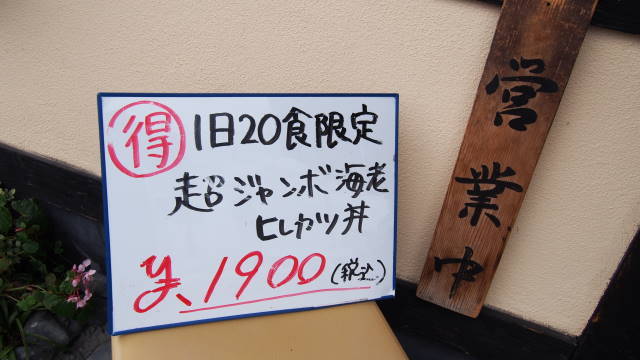 得 1日20食限定
超ジャンボ海老
ヒレカツ丼
¥1900(税込)
営業中